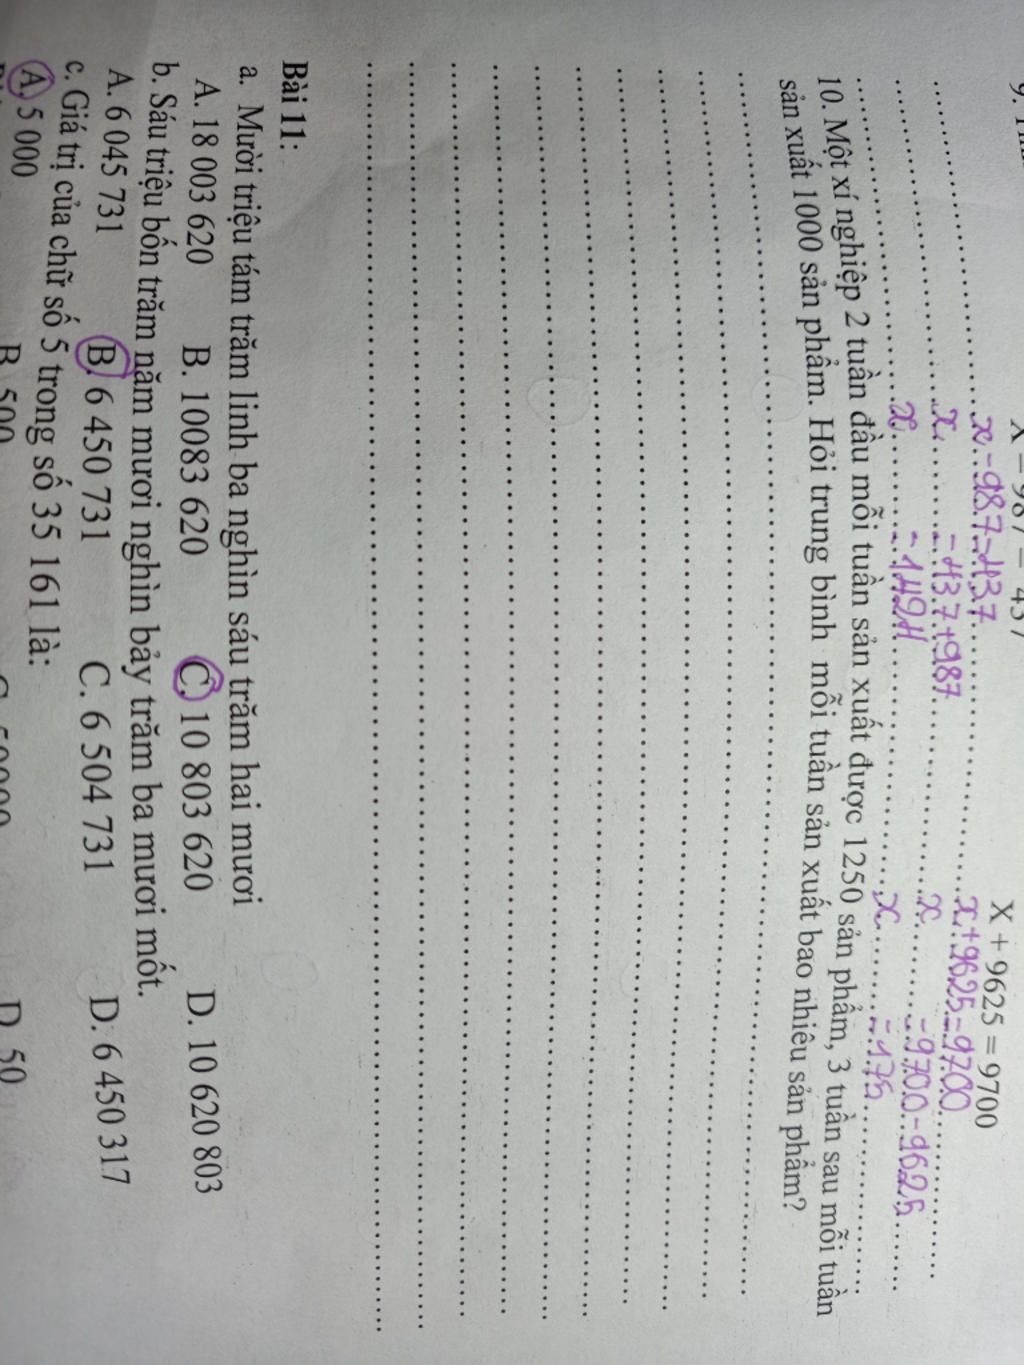 X - 987 = 437 X + 9625 = 9700
x - 987 = 437 x + 9625 = 9700
x = 437 + 987 x = 9700 - 9625
x = 1424 x = 175
10. Một xí nghiệp 2 tuần đầu mỗi tuần sản xuất được 1250 sản phẩm, 3 tuần sau mỗi tuần
sản xuất 1000 sản phẩm. Hỏi trung bình mỗi tuần sản xuất bao nhiêu sản phẩm?
Bài 11:
a. Mười triệu tám trăm linh ba nghìn sáu trăm hai mươi
A. 18 003 620 B. 10083 620 C. 10 803 620 D. 10 620 803
b. Sáu triệu bốn trăm năm mươi nghìn bảy trăm ba mươi mốt.
A. 6 045 731 B. 6 450 731 C. 6 504 731 D. 6 450 317
c. Giá trị của chữ số 5 trong số 35 161 là:
A. 5 000 B. 500 C. 50000 D. 50